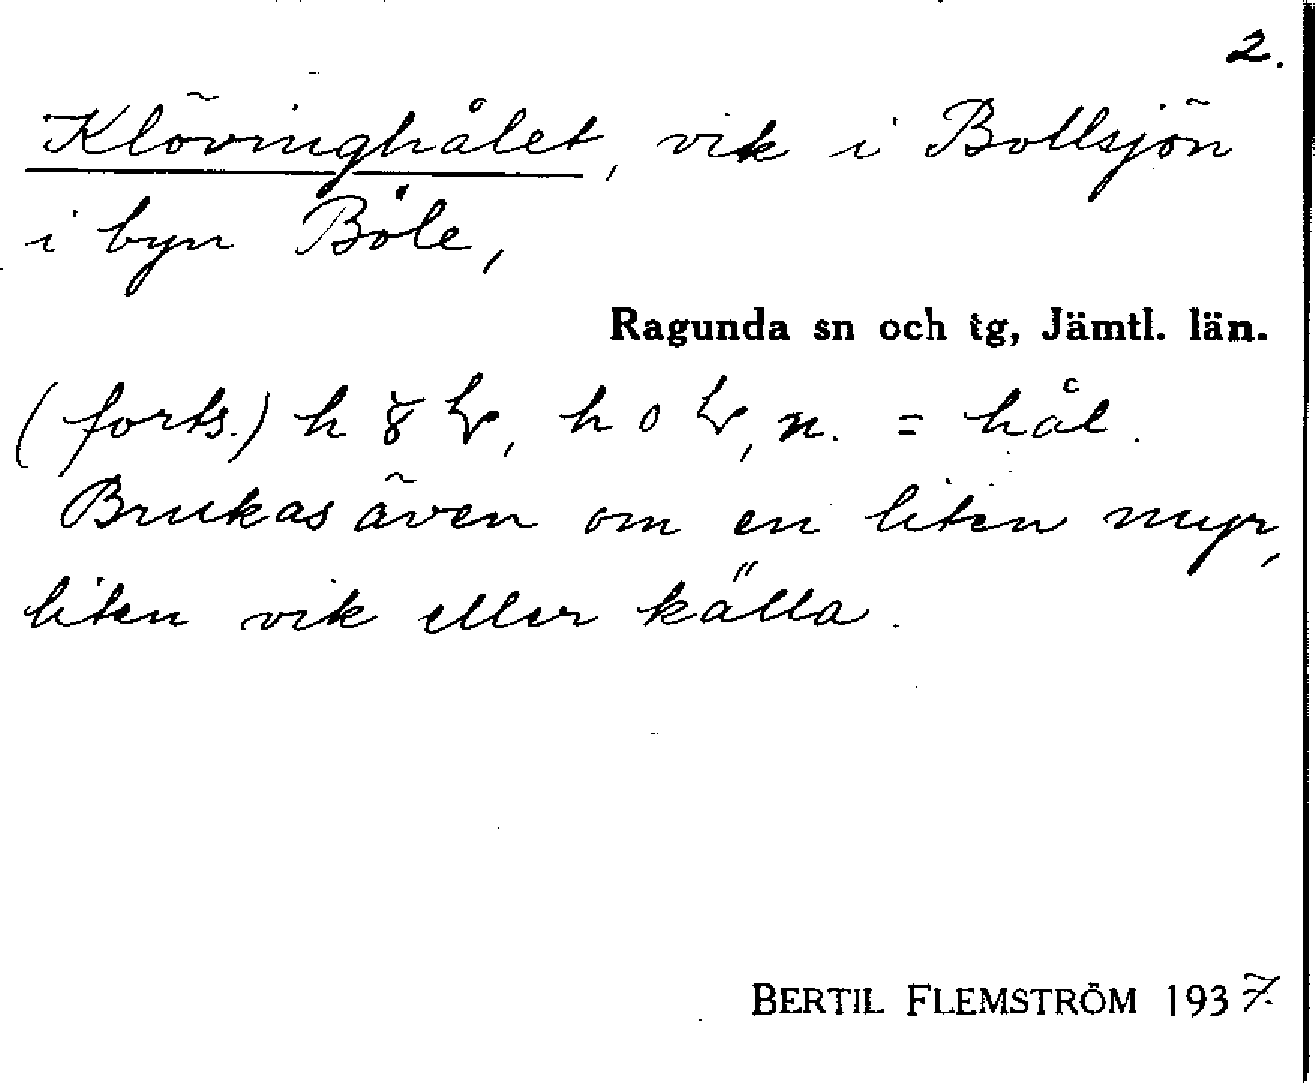 2.
Klövinghålet, vik i Bollsjön
i byn Böle,
Ragunda sn och tg, Jämtl. län.
(forts.) h n. = hål.
Brukas även om en liten myr,
liten vik eller källa.
BERTIL FLEMSTRÖM 1937.